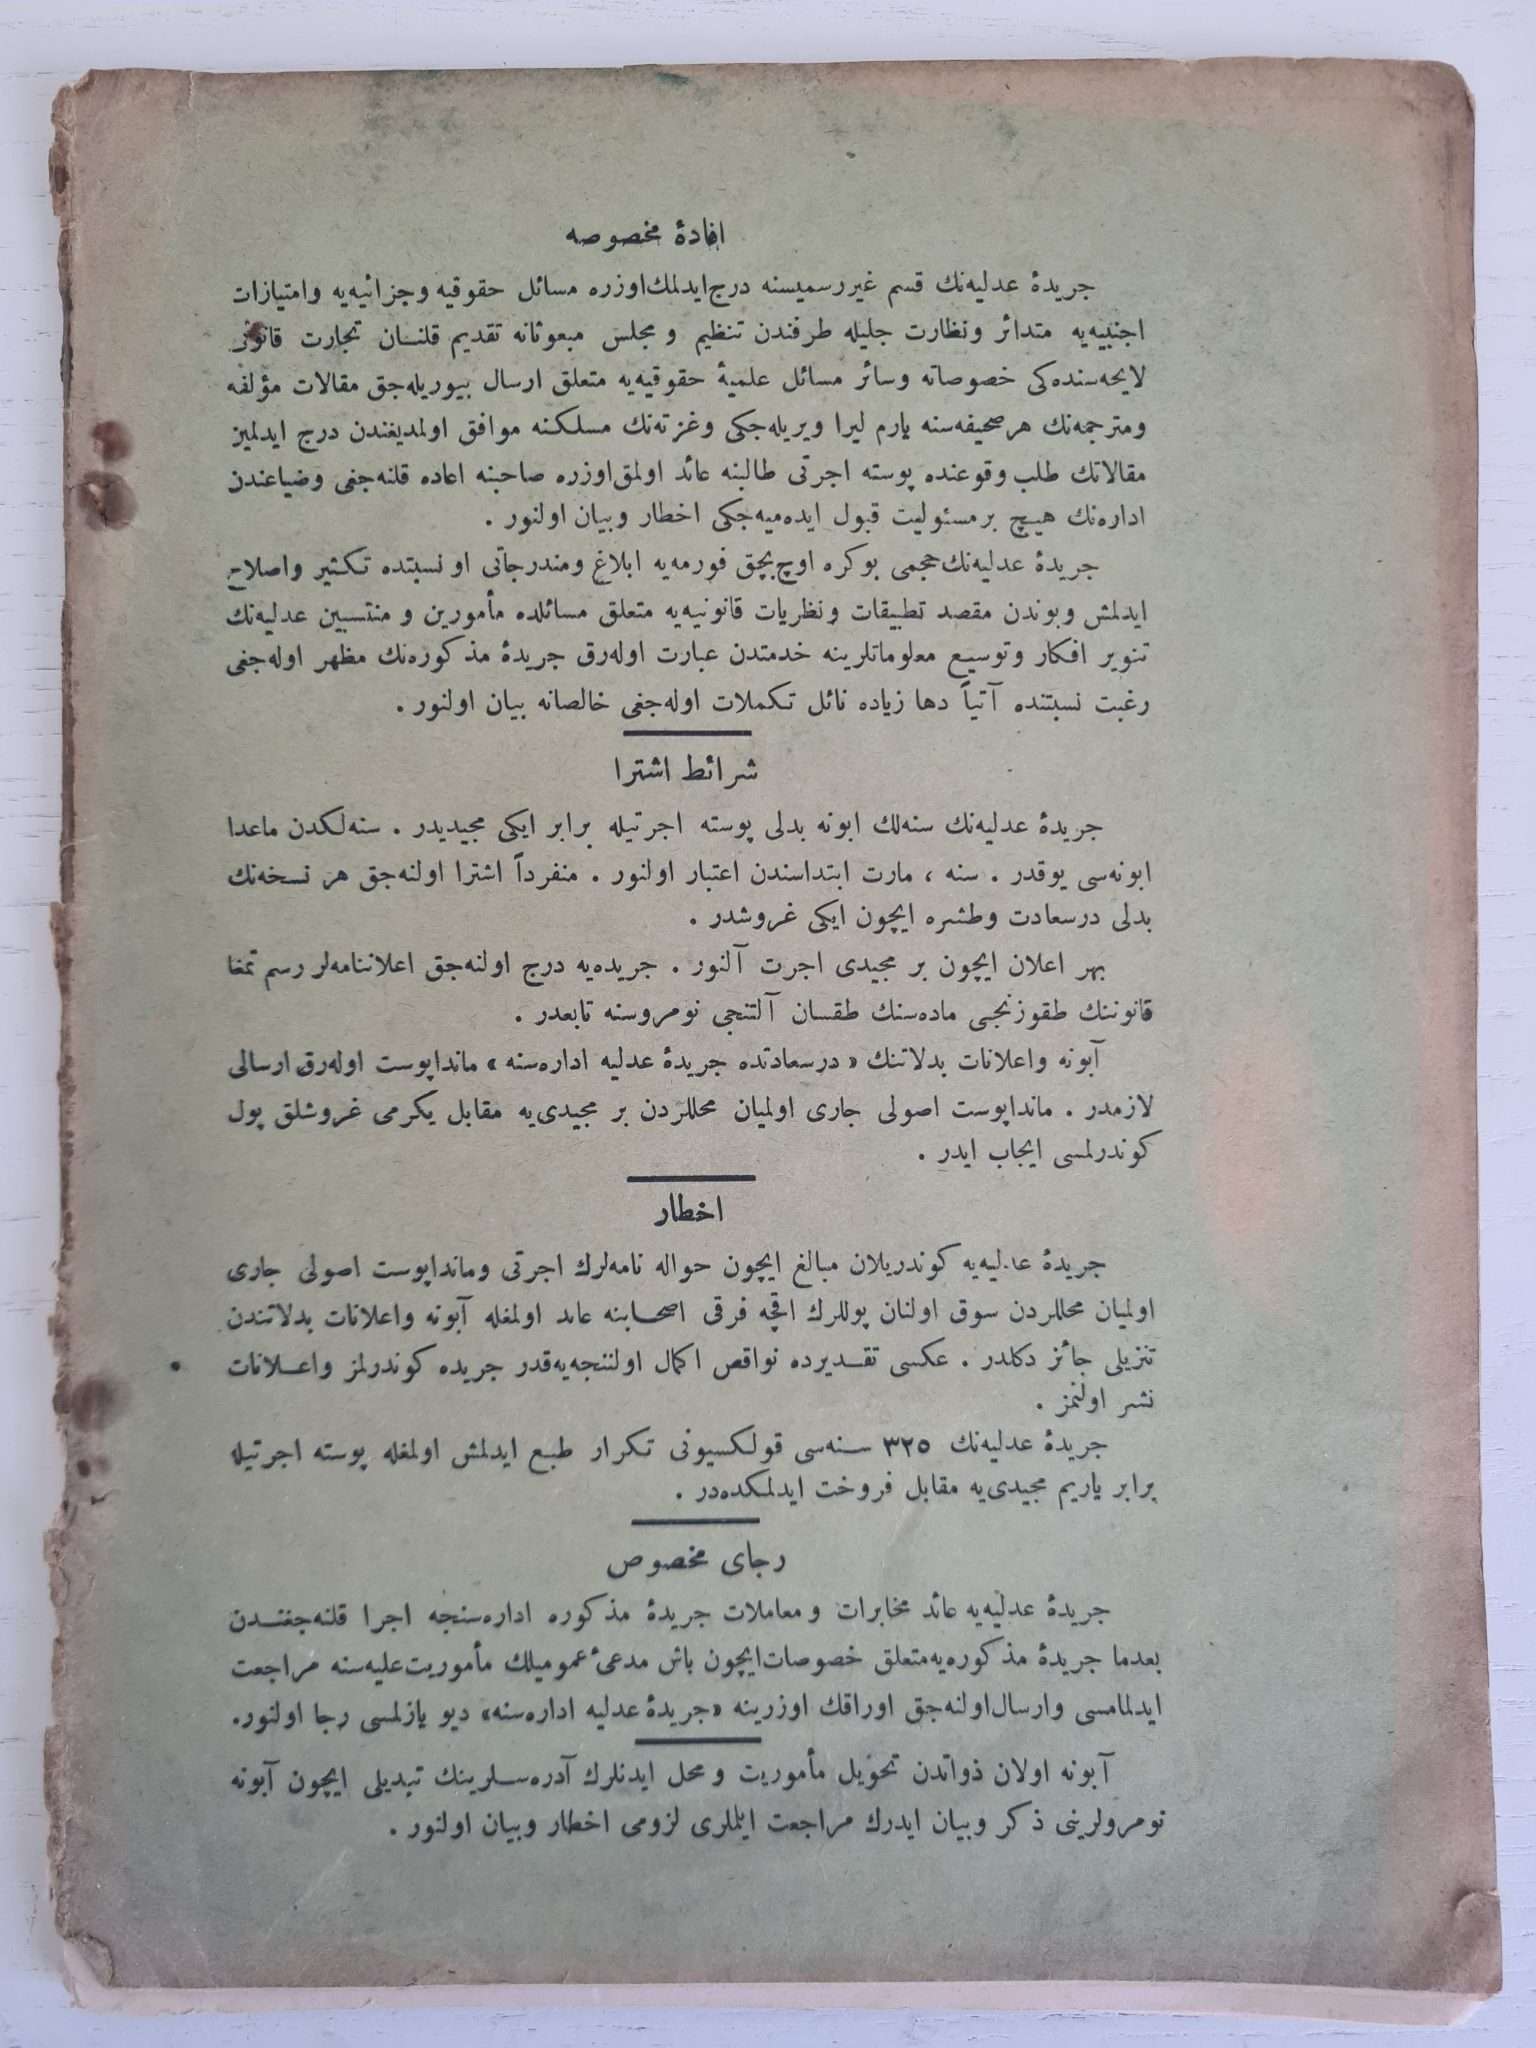 افادهٔ مخصوصه
جریدهٔ عدلیه‌نك قسم غیررسمیسنه درج ایدلمك اوزره مسائل حقوقیه و جزائیه‌یه وامتیازات
اجنبیه‌یه متدائر ونظارت جلیله طرفندن تنظیم و مجلس مبعوثانه تقدیم قلنـان تجارت قانونی
لایحه‌سنده‌کی خصوصاته وسائر مسائل علمیهٔ حقوقیه‌یه متعلق ارسال بیوریله‌جق مقالات مؤلفه
ومترجمه‌نك هر صحیفه‌سنه یارم لیرا ویریله‌جکی وغزته‌نك مسلکنه موافق اولمدیغندن درج ایدلمیز
مقالاتك طلب وقوعنده پوسته اجرتی طالبنه عائد اولمق اوزره صاحبنه اعاده قلنه‌جغی وضیاعندن
اداره‌نك هیـچ برمسئولیت قبول ایده‌میه‌جکی اخطار وبیان اولنور .
جریدهٔ عدلیه‌نك حجمی بوکره اوچ بچق فورمه‌یه ابلاغ ومندرجاتی او نسبتده تکثیر واصلاح
ایدلمش وبوندن مقصد تطبیقات ونظریات قانونیه‌یه متعلق مسائلده مأمورین و منتسبین عدلیه‌نك
تنویر افکار وتوسیع معلوماتلرینه خدمتدن عبارت اوله‌رق جریدهٔ مذکوره‌نك مظهر اوله‌جغی
رغبت نسبتنده آتیاً دها زیاده نائل تکملات اوله‌جغی خالصانه بیان اولنور .
شرائط اشترا
جریدهٔ عدلیه‌نك سنه‌لك ابونه بدلی پوسته اجرتیله برابر ایکی مجیدیدر . سنه‌لکدن ماعدا
ابونه‌سی یوقدر . سنه ، مارت ابتداسندن اعتبار اولنور . منفرداً اشترا اولنه‌جق هر نسخه‌نك
بدلی درسعادت وطشره ایچون ایکی غروشدر .
بهر اعلان ایچون بر مجیدی اجرت آلنور . جریده‌یه درج اولنه‌جق اعلاننامه‌لر رسم تمغا
قانوننك طقوزنجی ماده‌سنك طقسان آلتنجی نومروسنه تابعدر .
آبونه واعلانات بدلاتنك « درسعادتده جریدهٔ عدلیه اداره‌سنه » مانداپوست اوله‌رق ارسالی
لازمدر . مانداپوست اصولی جاری اولمیان محللردن بر مجیدی‌یه مقابل یکرمی غروشلق پول
کوندرلمسی ایجاب ایدر .
اخطار
جریدهٔ عدلیه‌یه کوندریلان مبالغ ایچون حواله نامه‌لرك اجرتی ومانداپوست اصولی جاری
اولمیان محللردن سوق اولنان پوللرك اقچه فرقی اصحـابنه عاىد اولمغله آبونه واعلانات بدلاتندن
تنزیلی جائز دکلدر . عکسی تقـدیرده نواقص اکمال اولننجه‌یه‌قدر جریده کوندرلمز واعـلانات
نشر اولنمز .
جریدهٔ عدلیه‌نك ٣٢٥ سـنه‌سی قولکسیونی تکرار طبع ایدلمش اولمغله پوسته اجرتیله
برابر یاریم مجیدی‌یه مقابل فروخت ایدلمکده‌در .
رجای مخصوص
جریدهٔ عدلیه‌یه عائد مخابرات و معاملات جریدهٔ مذکوره اداره‌سنجه اجرا قلنه‌جغنـدن
بعدما جریدهٔ مذکوره‌یه‌متعلق خصوصات‌ایچون باش مدعیٔ عمومیلك مأموریت‌علیه‌سنه مراجعت
ایدلمامسی وارسال‌اولنه‌جق اوراقك اوزرینه «جریدهٔ عدلیه اداره‌سنه» دیو یازلمسی رجا اولنور.
آبونه اولان ذواتدن تحویل مأموریت و محل ایدنلرك آدره‌سـلرینك تبدیلی ایچون آبونه
نومرولرینی ذکر وبیان ایدرك مراجعت ایتملری لزومی اخطار وبیان اولنور .